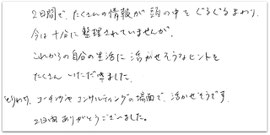 2日間で、たくさんの情報が頭の中をぐるぐるまわり、
今は十分に整理されていませんが、
これからの自分の生活に活かせそうなヒントを
たくさんいただきました。
とりわけ、コーチングやコンサルティングの場面で、活かせそうです。
2日間ありがとうございました。